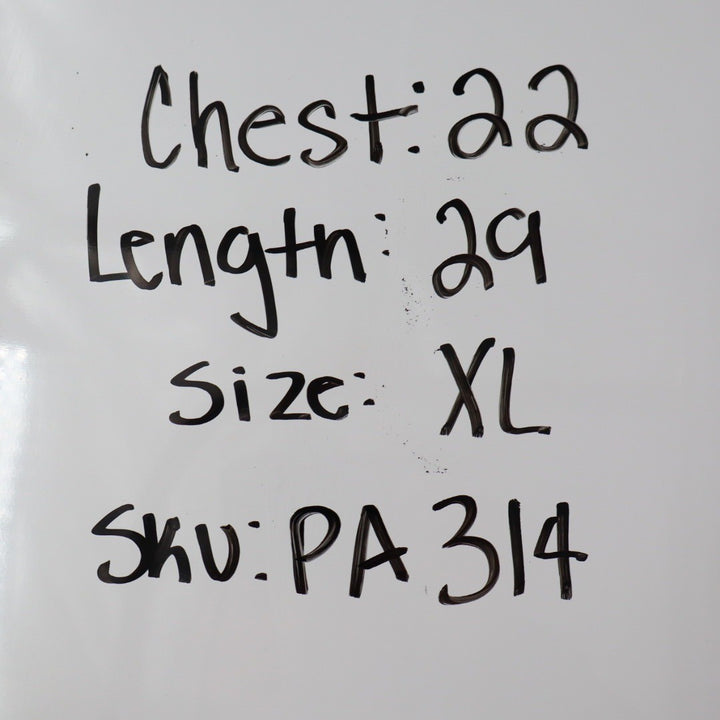 Chest: 22
Length: 29
Size: XL
SKU: PA 314